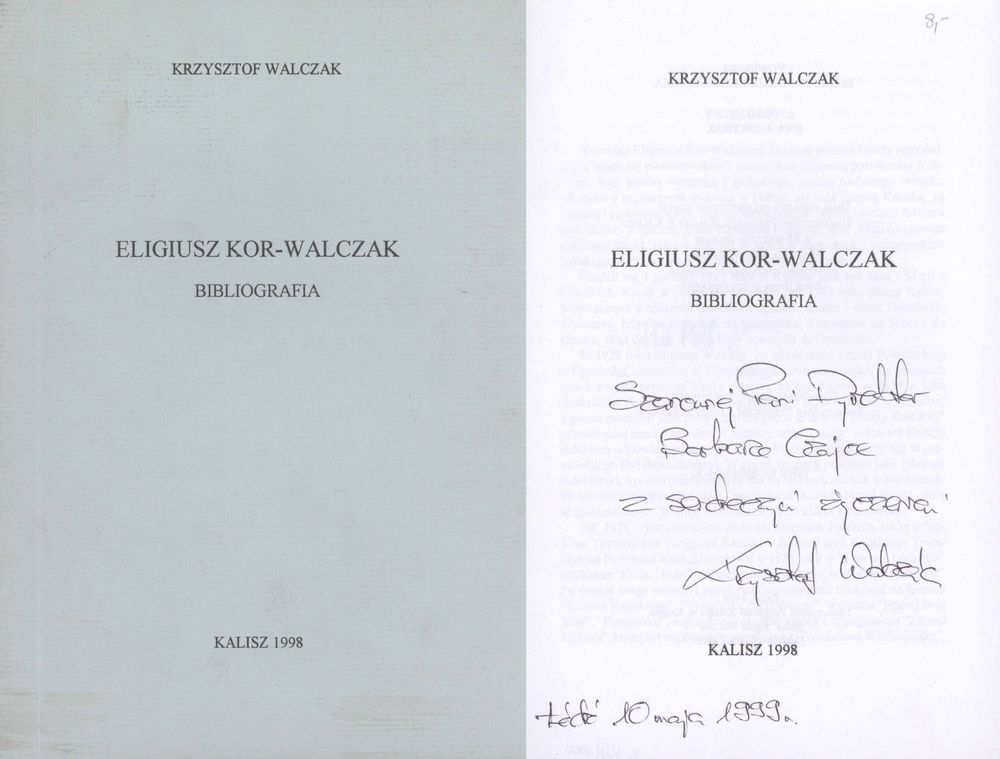 KRZYSZTOF WALCZAK
ELIGIUSZ KOR-WALCZAK
BIBLIOGRAFIA
KALISZ 1998
8,-
KRZYSZTOF WALCZAK
ELIGIUSZ KOR-WALCZAK
BIBLIOGRAFIA
Szanownej Pani Dyrektor
Barbarze Czajce
z serdecznymi życzeniami
Krzysztof Walczak
KALISZ 1998
Łódź 10 maja 1999 r.